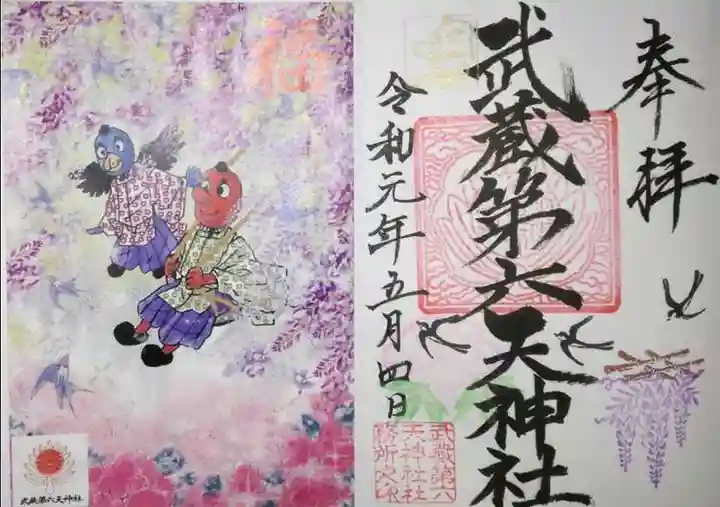 奉拝
武蔵第六天神社
令和元年五月四日
武蔵第六
天神社社
務所之印
福
武蔵第六天神社